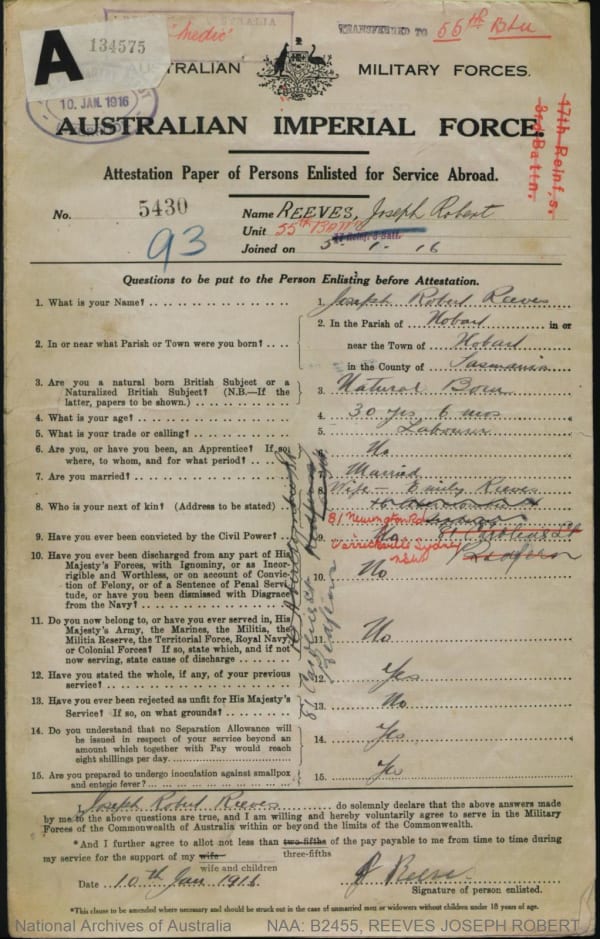 A
134575
'Medic'
TRANSFERRED TO 55th Btn
AUSTRALIAN MILITARY FORCES.
10. JAN. 1916
AUSTRALIAN IMPERIAL FORCE.
17th Reinf,s.
3rd Battn.
Attestation Paper of Persons Enlisted for Service Abroad.
No. 5430 Name REEVES, Joseph Robert
93
Unit 55th BATTN
Joined on 5 . 1 . 16
Questions to be put to the Person Enlisting before Attestation.
1. What is your Name? 1. Joseph Robert Reeves
2. In or near what Parish or Town were you born? 2. In the Parish of Hobart in or
near the Town of Hobart
in the County of Tasmania
3. Are you a natural born British Subject or a
Naturalized British Subject? (N.B.—If the
latter, papers to be shown.) 3. Natural Born
4. What is your age? 4. 30 yrs 6 mos
5. What is your trade or calling? 5. Labourer
6. Are you, or have you been, an Apprentice? If so,
where, to whom, and for what period? 6. No
7. Are you married? 7. Married
8. Who is your next of kin? (Address to be stated) 8. Wife - Emily Reeves
81 Newington Rd
Marrickville Sydney
NSW
61 Caroline St
Redfern
9. Have you ever been convicted by the Civil Power? 9. No
10. Have you ever been discharged from any part of His
Majesty's Forces, with Ignominy, or as Incor-
rigible and Worthless, or on account of Convic-
tion of Felony, or of a Sentence of Penal Servi-
tude, or have you been dismissed with Disgrace
from the Navy? 10. No
11. Do you now belong to, or have you ever served in, His
Majesty's Army, the Marines, the Militia, the
Militia Reserve, the Territorial Force, Royal Navy
or Colonial Forces? If so, state which, and if not
now serving, state cause of discharge 11. No
12. Have you stated the whole, if any, of your previous
service? 12. Yes
13. Have you ever been rejected as unfit for His Majesty's
Service? If so, on what grounds? 13. No
14. Do you understand that no Separation Allowance will
be issued in respect of your service beyond an
amount which together with Pay would reach
eight shillings per day. 14. Yes
15. Are you prepared to undergo inoculation against smallpox
and enteric fever? 15. Yes
I, Joseph Robert Reeves do solemnly declare that the above answers made
by me to the above questions are true, and I am willing and hereby voluntarily agree to serve in the Military
Forces of the Commonwealth of Australia within or beyond the limits of the Commonwealth.
*And I further agree to allot not less than two-fifths of the pay payable to me from time to time during
three-fifths
my service for the support of my wife
wife and children
Date 10th Jan 1916. J Reeves
Signature of person enlisted.
*This clause to be amended where necessary and should be struck out in the case of unmarried men or widowers without children under 18 years of age.
National Archives of Australia NAA: B2455, REEVES JOSEPH ROBERT